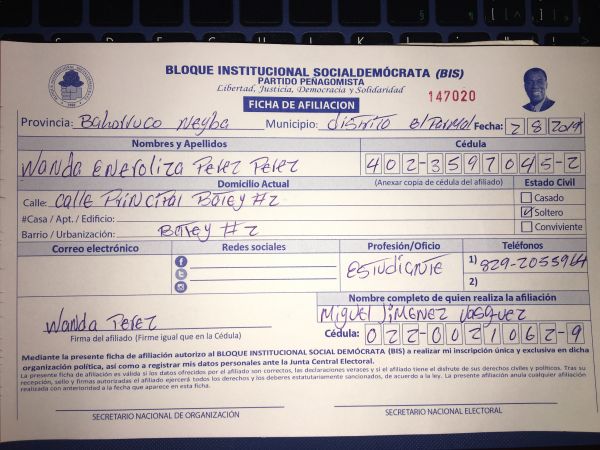 BLOQUE INSTITUCIONAL SOCIALDEMÓCRATA (BIS)
PARTIDO PEÑAGOMISTA
Libertad, Justicia, Democracia y Solidaridad
FICHA DE AFILIACION
147020
Provincia: Bahorruco Neyba Municipio: Distrito El Palmar Fecha: 2 8 2019
Nombres y Apellidos Cédula
Wanda Eneroliza Perez Perez 402-3597045-2
Domicilio Actual (Anexar copia de cédula del afiliado) Estado Civil
Calle: calle Principal Batey #2 Casado
#Casa / Apt. / Edificio: Soltero
Barrio / Urbanización: Batey #2 Conviviente
Correo electrónico Redes sociales Profesión/Oficio Teléfonos
Estudiante 1) 829-2055964
2)
Nombre completo de quien realiza la afiliación
Wanda Perez Miguel Jimenez Vasquez
Firma del afiliado (Firme igual que en la Cédula) Cédula: 022-0021062-9
Mediante la presente ficha de afiliación autorizo al BLOQUE INSTITUCIONAL SOCIAL DEMÓCRATA (BIS) a realizar mi inscripción única y exclusiva en dicha
organización política, así como a registrar mis datos personales ante la Junta Central Electoral.
La presente ficha de afiliación es válida si los datos ofrecidos por el afiliado son correctos, las declaraciones veraces y si el afiliado tiene el disfrute de sus derechos civiles y políticos. Tras su
recepción, sello y firmas autorizadas el afiliado ejercerá todos los derechos y los deberes estatutariamente sancionados, de acuerdo a la ley. La presente afiliación anula cualquier afiliación
realizada con anterioridad a la fecha que aparece en esta ficha.
SECRETARIO NACIONAL DE ORGANIZACIÓN SECRETARIO NACIONAL ELECTORAL